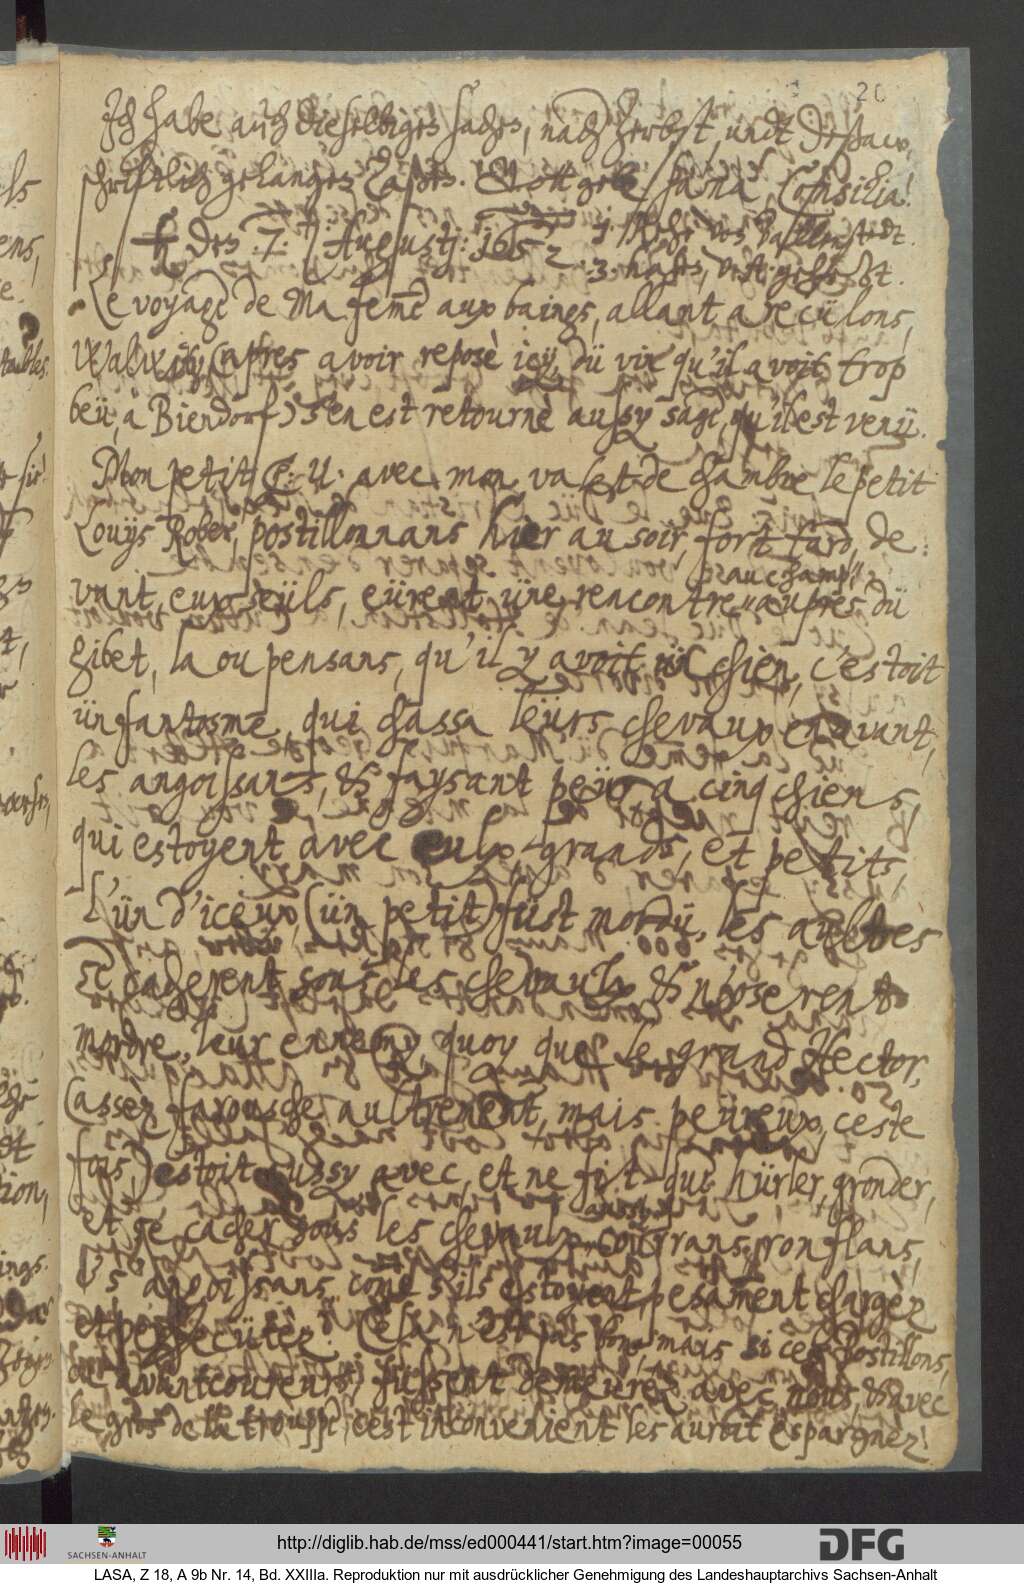 20
Ich habe auch dieselbigen sachen, nach Zerbst, undt Deßaw,
schriftlich gelangen laßen. Gott gebe sana Consilia!
ᛧ den 7. Augustj: 1652. 1 Rehe von Ballenstedt.
3 hasen, Vct: geschickt.
Le voyage de Ma feme aux baings, allant a recülons,
Walwitz (apres avoir reposè icy, dü vin qu'il avoit trop
beü, à Biendorf) s'en est retournè aussy sage, qu'il est venü.
Mon petit C: U: avec mon valet de chambre le petit
Louys Rober, postillonnans hier au soir, fort tard, de-
vant, eux seüls, eürent üne rencontre, aupres dü
gibet, la ou pensans, qu'il y avoit ün chien, c'estoit
ün fantosme, qui chassa leürs chevaux en avant,
les angoissant, & faysant peür a cinq chiens,
qui estoyent avec eulx grands, et petits,
L'ün d'iceux, (ün petit) füst mordü, les aultres
se cacherent sous les chevaulx & n'oserent
mordre, leur ennemy, quoy que le grand Hector,
(assèz farousche aultrement, mais peüreux, ceste
fois,) estoit aussy avec, et ne fit que hürler, gronder,
et se cacher sous les chevaulx aussy courrans, ronflans,
& angoissans, come s'ils estoyent, pesament chargèz
et persecütèz. Cela n'est pas bon, mais si ces Postillons,
ou avantcoureurs, füssent demeurèz avec nous, & avec
le gros de la trouppe, c'est inconvenient les auroit espargnèz!
http://diglib.hab.de/mss/ed000441/start.htm?image=00055
SACHSEN-ANHALT
DFG
LASA, Z 18, A 9b Nr. 14, Bd. XXIIIa. Reproduktion nur mit ausdrücklicher Genehmigung des Landeshauptarchivs Sachsen-Anhalt